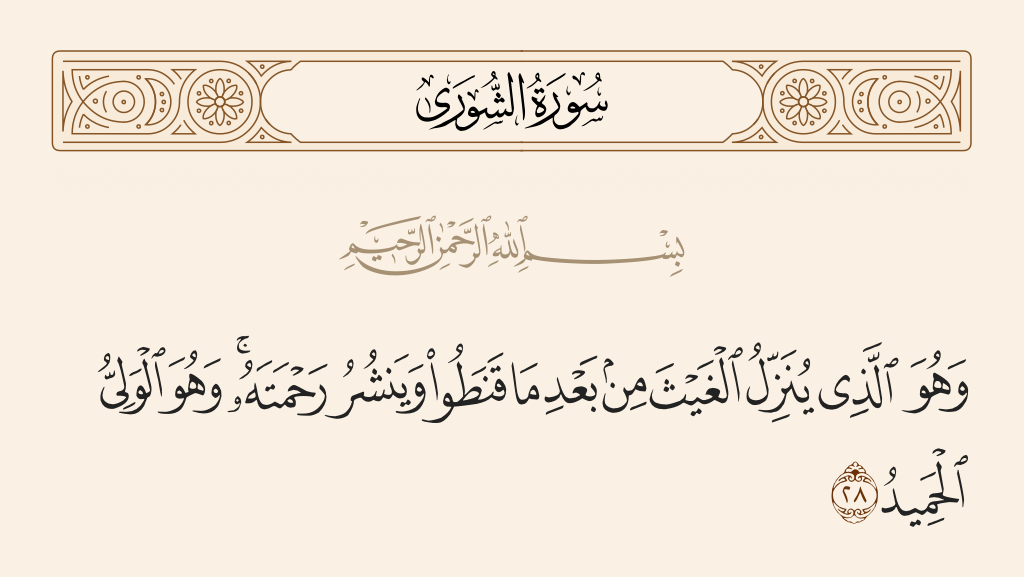 سُورَةُ الشُّورَىٰ
بِسْمِ ٱللَّهِ ٱلرَّحْمَٰنِ ٱلرَّحِيمِ
وَهُوَ ٱلَّذِى يُنَزِّلُ ٱلْغَيْثَ مِنۢ بَعْدِ مَا قَنَطُوا۟ وَيَنشُرُ رَحْمَتَهُۥ ۚ وَهُوَ ٱلْوَلِىُّ
ٱلْحَمِيدُ ٢٨